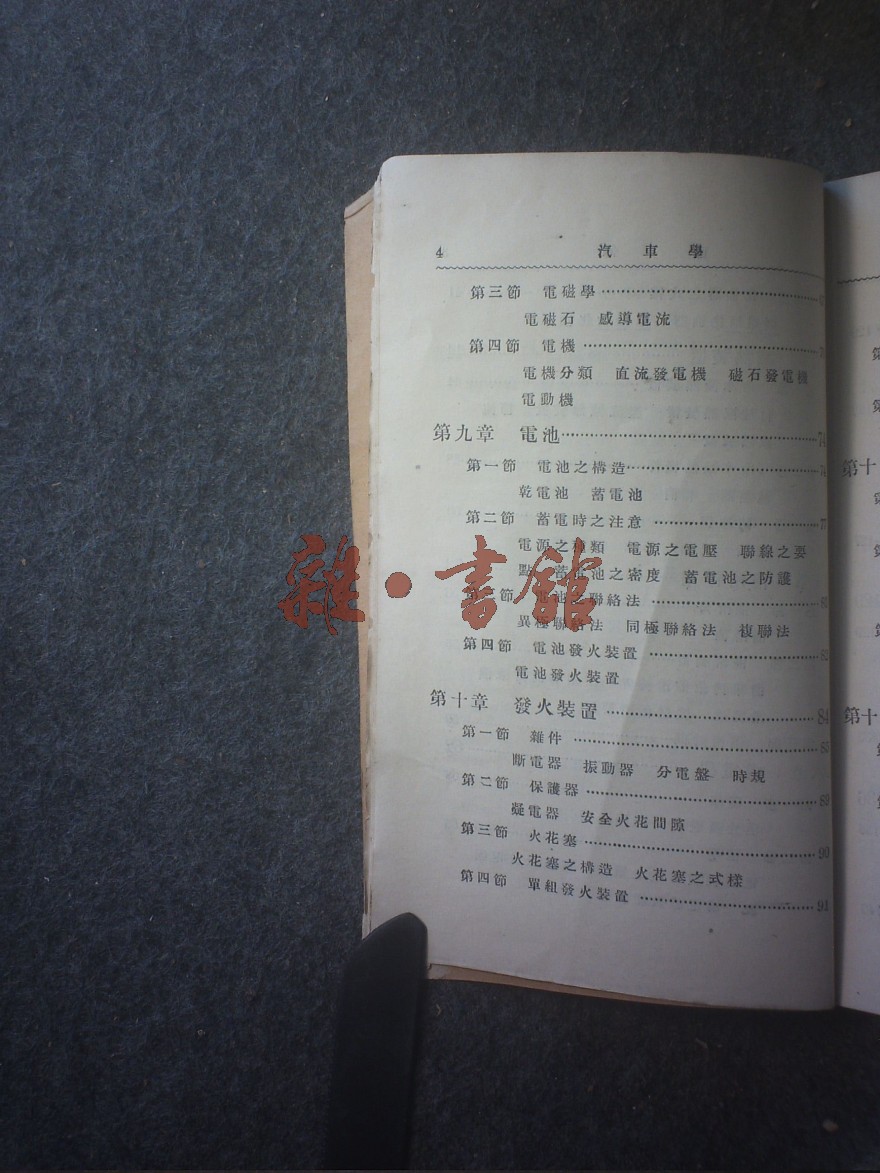 4 汽車學
第三節 電磁學
電磁石 感導電流
第四節 電機
電機分類 直流發電機 磁石發電機
電動機
第九章 電池 74
第一節 電池之構造 74
乾電池 蓄電池
第二節 蓄電時之注意 77
電源之種類 電源之電壓 聯線之要
點 蓄電池之密度 蓄電池之防護
第三節 電池之聯絡法
異極聯絡法 同極聯絡法 複聯法
第四節 電池發火裝置 82
電池發火裝置
第十章 發火裝置 84
第一節 雜件
斷電器 振動器 分電盤 時規
第二節 保護器 89
凝電器 安全火花間隙
第三節 火花塞 90
火花塞之構造 火花塞之式樣
第四節 單組發火裝置 91
雜·書館
第十
第十